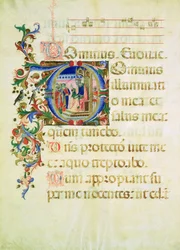 Dominus. Euouae.
Dominus
illuminati
o mea et
salus mea
quem timebo.
Dñs protector vite me
e: a quo trepidabo.
Dum appropiant su
per me nocentes: ut ed